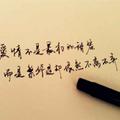 爱情不是最初的诺言
而是繁华退却依然不离不弃